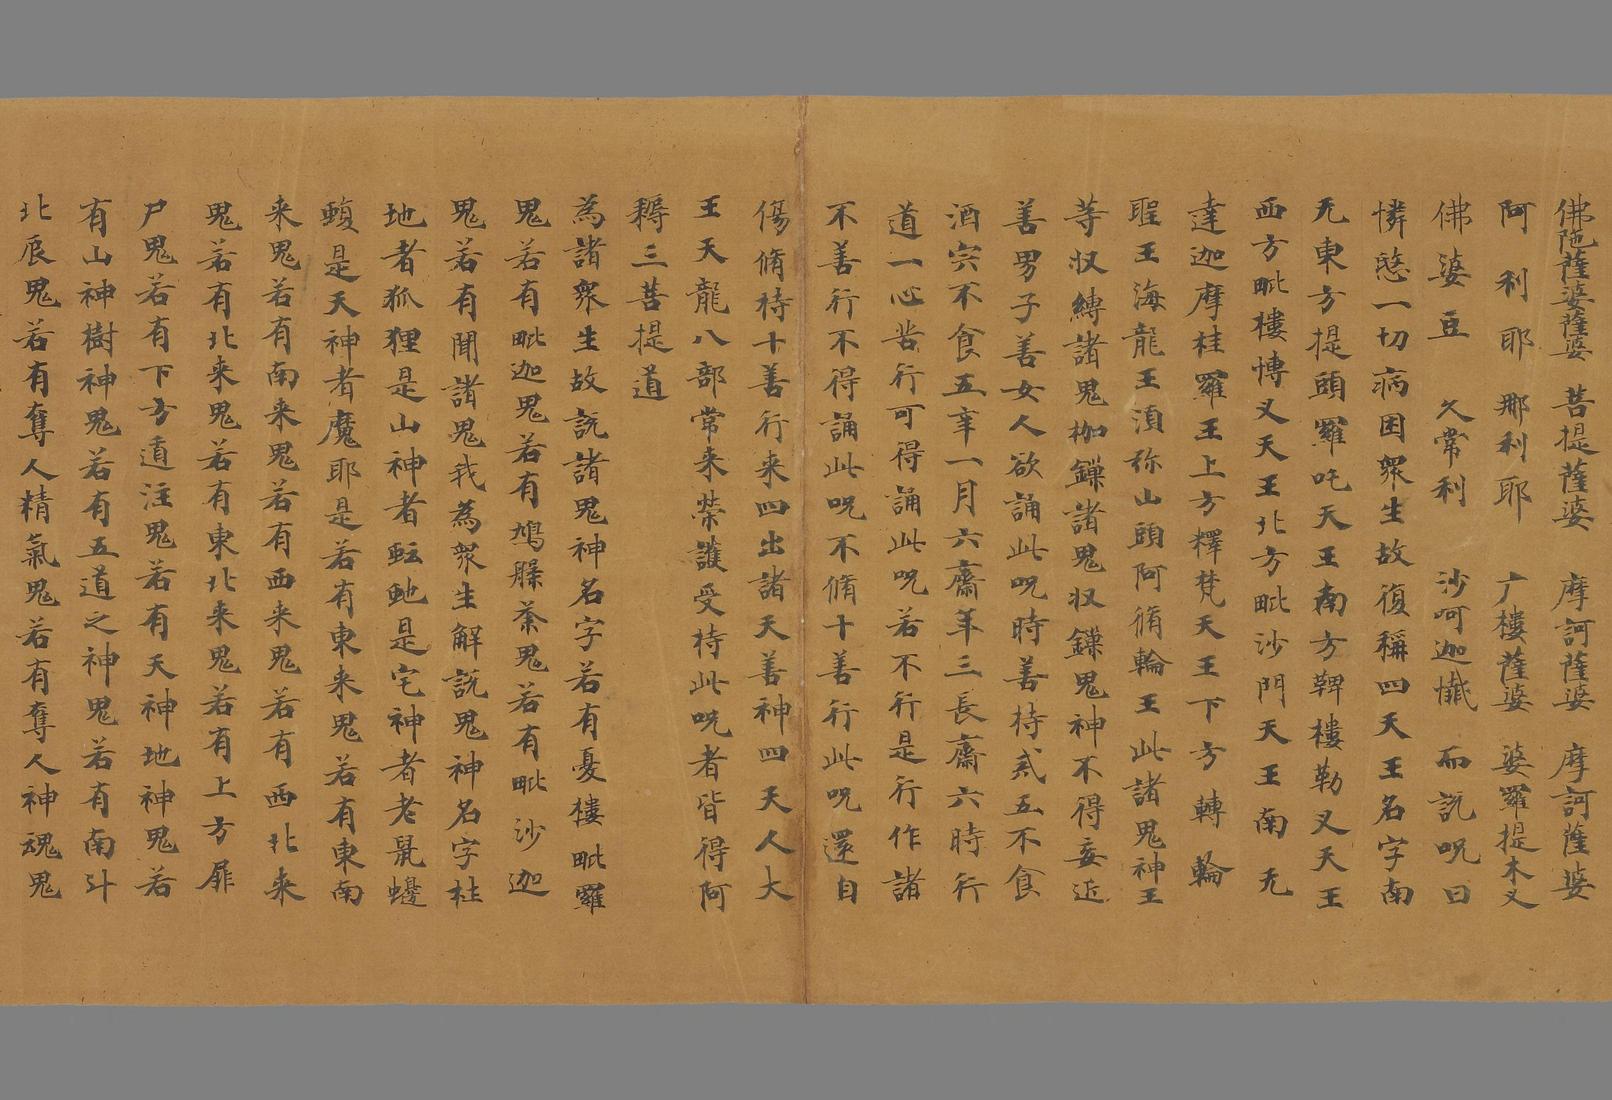 佛陁薩婆薩婆　菩提薩婆　摩訶薩婆　摩訶薩婆
阿　利　耶　那利耶　广樓薩婆　婆羅提木叉
佛　婆　豆　久常利　沙呵迦懺　而說呪曰
憐愍一切病困衆生故復稱四天王名字南
无東方提頭羅吒天王南方鞞樓勒叉天王
西方毗樓博叉天王北方毗沙門天王南　无
達迦摩桂羅王上方釋梵天王下方轉　輪
聖王海龍王湏弥山頭阿脩輪王此諸鬼神王
等収縛諸鬼枷鏁諸鬼収鏁鬼神不得妄近
善男子善女人欲誦此呪時善持貳五不食
酒宍不食五辛一月六齋年三長齋六時行
道一心苦行可得誦此呪若不行是行作諸
不善行不得誦此呪不脩十善行此呪還自
傷脩持十善行来四出諸天善神四天人大
王天龍八部常来營護受持此呪者皆得阿
耨三菩提道
為諸衆生故說諸鬼神名字若有憂樓毗羅
鬼若有毗迦鬼若有鳩䑁荼鬼若有毗沙迦
鬼若有聞諸鬼我為衆生解說鬼神名字杜
地者狐狸是山神者蚖虵是宅神者老鼠蟃
螾是天神者魔耶是若有東来鬼若有東南
来鬼若有南来鬼若有西来鬼若有西北来
鬼若有北来鬼若有東北来鬼若有上方扉
尸鬼若有下方遉注鬼若有天神地神鬼若
有山神樹神鬼若有五道之神鬼若有南斗
北辰鬼若有奪人精氣鬼若有奪人神魂鬼